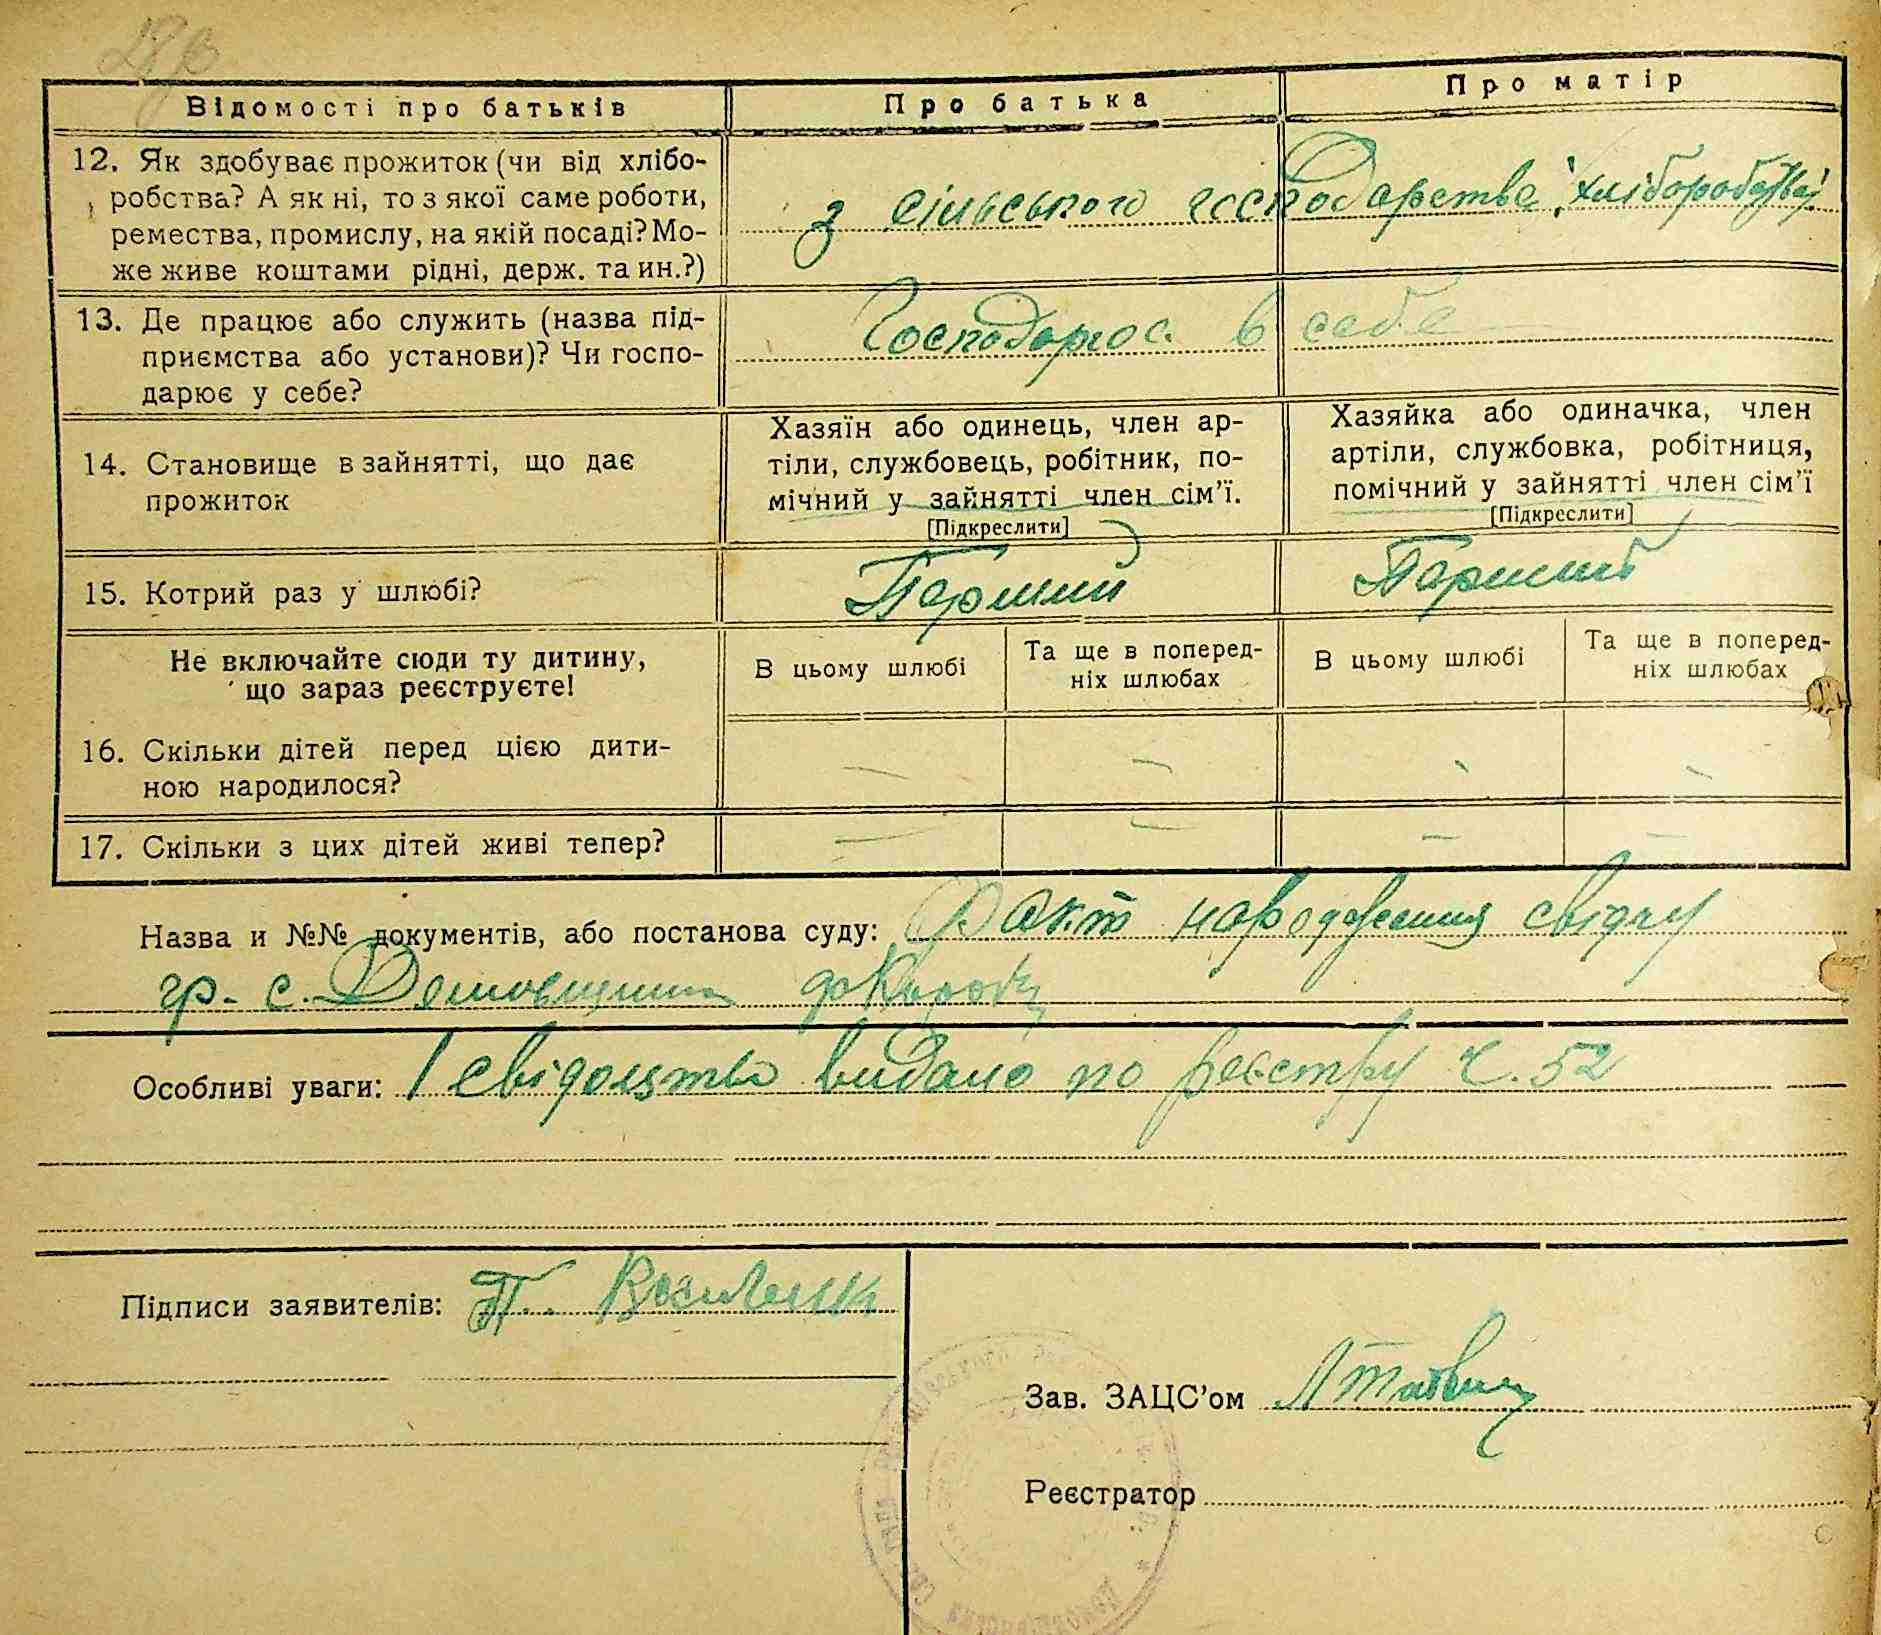 Відомості про батьків
Про батька
Про матір
12. Як здобуває прожиток (чи від хлібо-
робства? А як ні, то з якої саме роботи,
ремества, промислу, на якій посаді? Мо-
же живе коштами рідні, держ. та ин.?)
з сільського господарства,
13. Де працює або служить (назва під-
приємства або установи)? Чи госпо-
дарює у себе?
в себе
14. Становище в зайнятті, що дає
прожиток
Хазяїн або одинець, член ар-
тіли, службовець, робітник, по-
мічний у зайнятті член сім'ї.
[Підкреслити]
Хазяйка або одиначка, член
артіли, службовка, робітниця,
помічний у зайнятті член сім'ї
[Підкреслити]
15. Котрий раз у шлюбі?
Перший
Перший
Не включайте сюди ту дитину,
що зараз реєструєте!
В цьому шлюбі
Та ще в поперед-
ніх шлюбах
В цьому шлюбі
Та ще в поперед-
ніх шлюбах
16. Скільки дітей перед цією дити-
ною народилося?
— — — —
17. Скільки з цих дітей живі тепер?
— — — —
Назва и №№ документів, або постанова суду: Факт народження
гр. с.
Особливі уваги: 1 свідоцтво видано по реєстру ч. 52
Підписи заявителів: П.
Зав. ЗАЦС'ом
Реєстратор